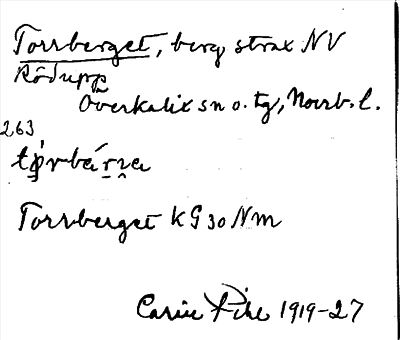 Torrberget, berg strax NV
Rödupp
Överkalix sn o. tg, Norrb. l.
263
Torrberget KG 30 Nm
Carin Pihl 1919-27